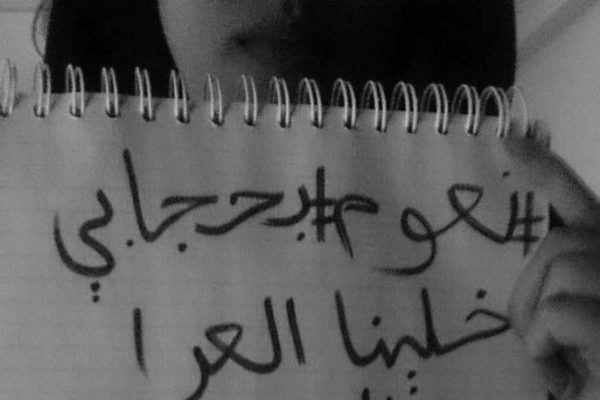 #نعوم #بحرجابي
خلينا العرا